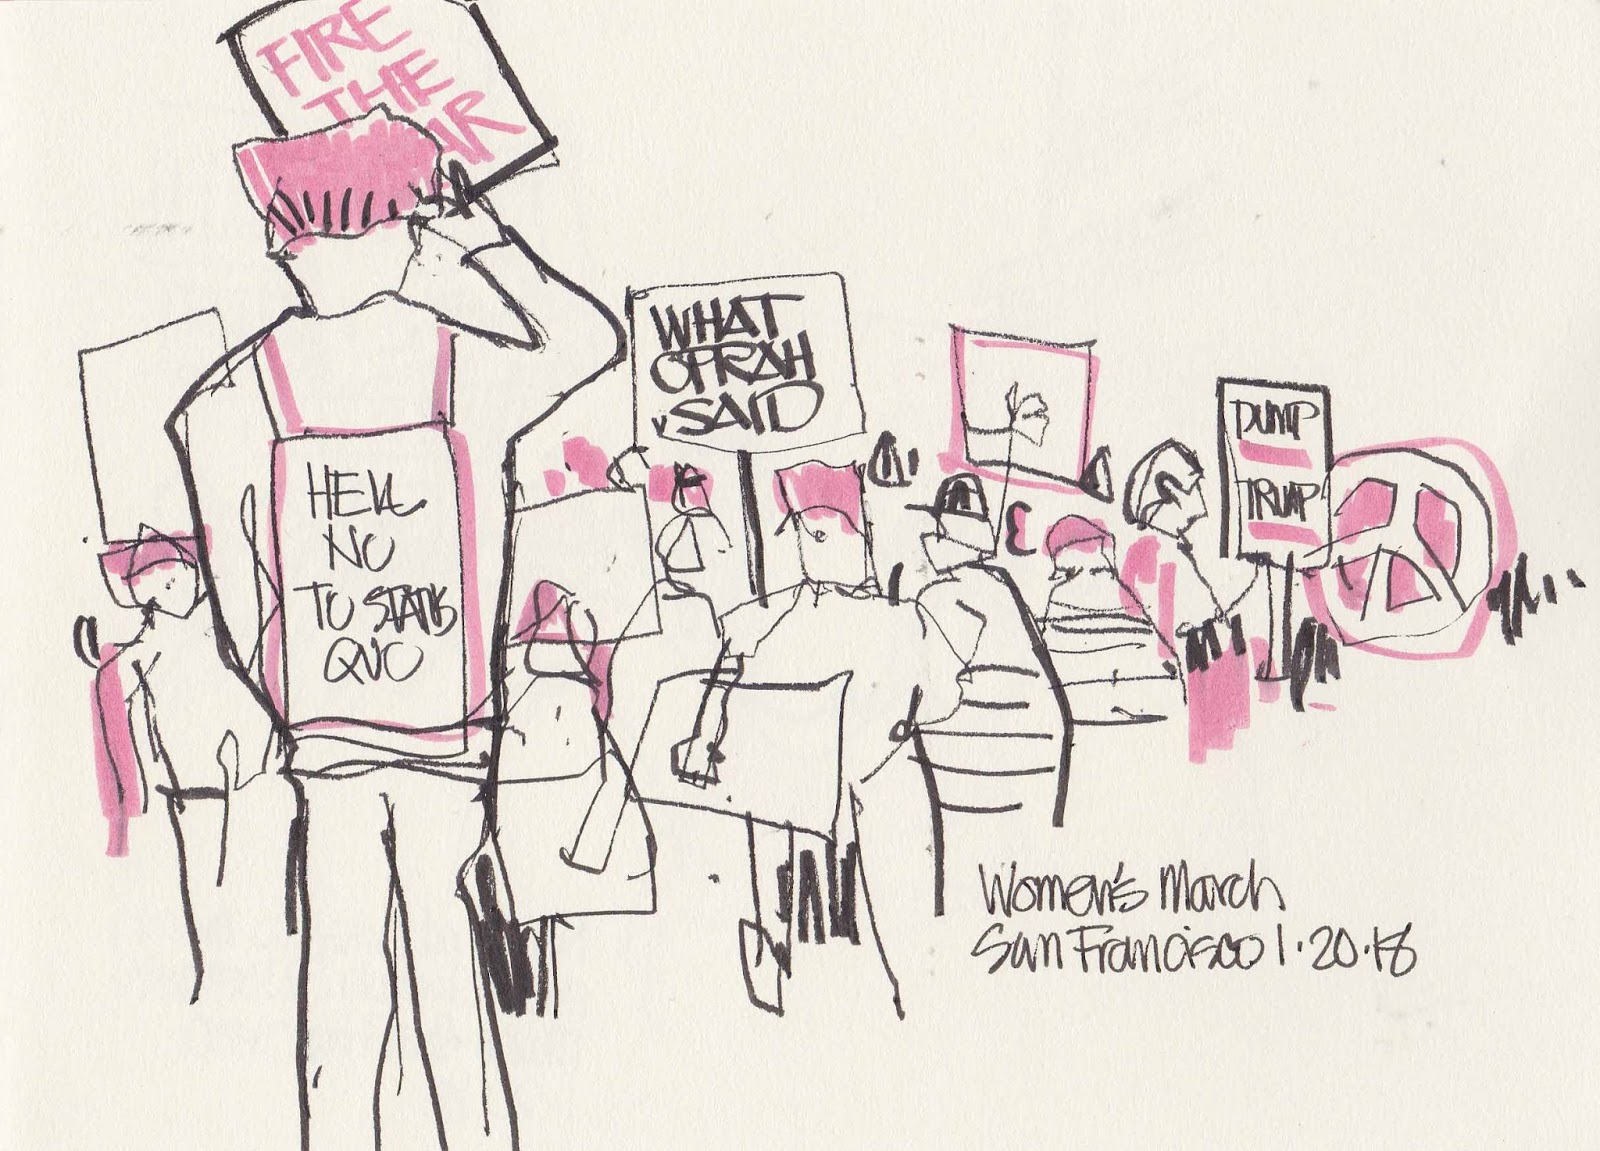 FIRE
THE
AR
WHAT
OPRAH
SAID
DUMP
TRUMP
HELL
NO
TO STATUS
QUO
Women's March
San Francisco 1.20.18